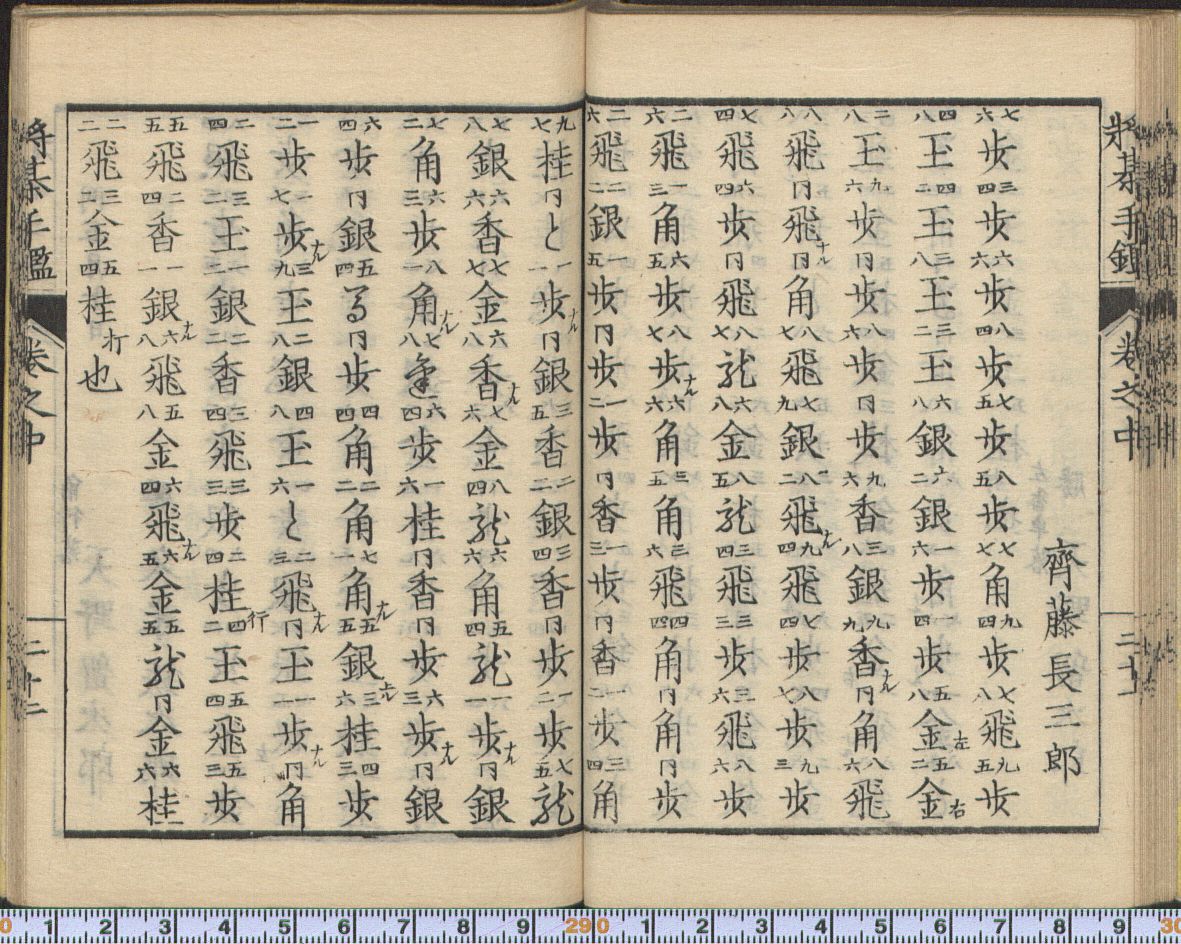 将棊手鑑 卷之中
齊藤長三郎
七六歩 三四歩 六六歩 八四歩 七五歩 八五歩 七七角 九四歩 七八飛 九五歩
四八王 四二王 三八王 三二王 六八銀 六二銀 一六歩 一四歩 五八金左 五二金右
二八王 九六歩 同歩 八六歩 同歩 九六香 三八銀 九九香ナル 同角 八六飛
八八飛 同飛ナル 同角 八七飛 七九銀 八二飛ナル 九四飛 七四歩 八七歩 九三歩
七四飛 六四歩 同飛 八七龍 六八金 八五龍 三四飛 三三歩 三六飛 八六歩
二六飛 一三角 六五歩 八七歩ナル 六六角 三五角 三六飛 四四角 同角 同歩
二六飛 二二銀 一五歩 同歩 一二歩 同香 一三歩 同香 一二歩 三四角
九七桂 同と 一一歩ナル 同銀 三五香 二二銀 三四香 同歩 一二歩 七五龍
七八銀 六六香 七七金 六八香ナル 七六金 八四龍 六六角 五四龍 一一歩ナル 同銀
七二角 六三歩 八一角ナル 七八 六四歩 一六桂 同香 同歩 六三歩ナル 同銀
六四歩 同銀 五四馬 同歩 四四角 二二角 七一角ナル 五五銀ナル 三六桂 四三歩
一二歩 一七歩ナル 三九王 二八銀 四八王 一六と 二三飛ナル 同王 一一歩ナル 同角
二四飛 三二王 一二銀 二二香 三四飛 三三歩 二四桂 四二王行 五四飛 五三歩
五五飛 二四香 一一銀ナル 六八飛 五八金 六四飛ナル 六五金 五五龍 同金 六六桂
二二飛 三二金 五四桂打也
将棊手鑑 卷之中 二十二